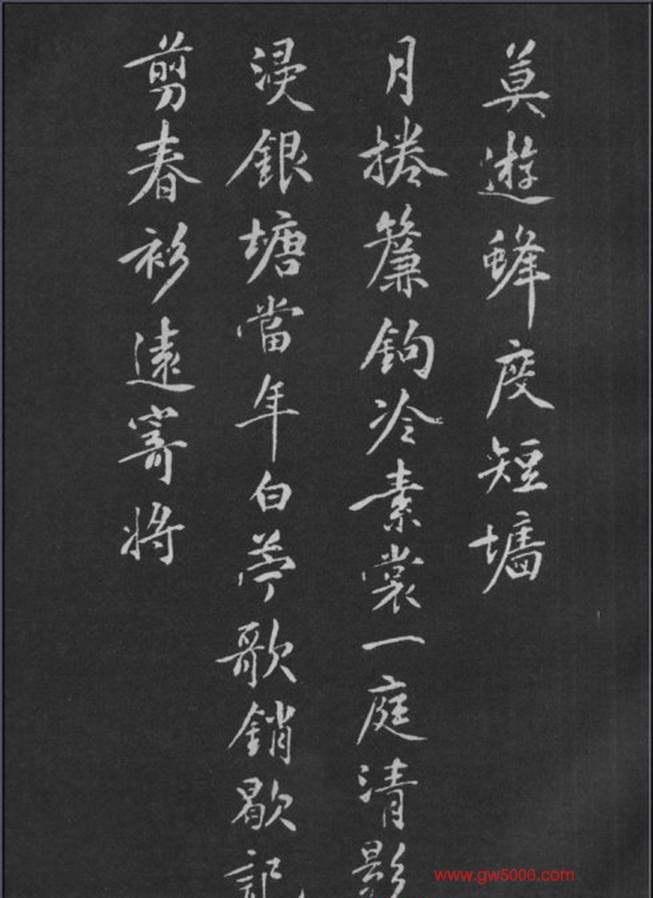 莫遊蜂度短墻
月捲簾鉤冷素裳一庭清影
浸銀塘當年白苧歌銷歇記
剪春衫遠寄將
www.gw5000.com